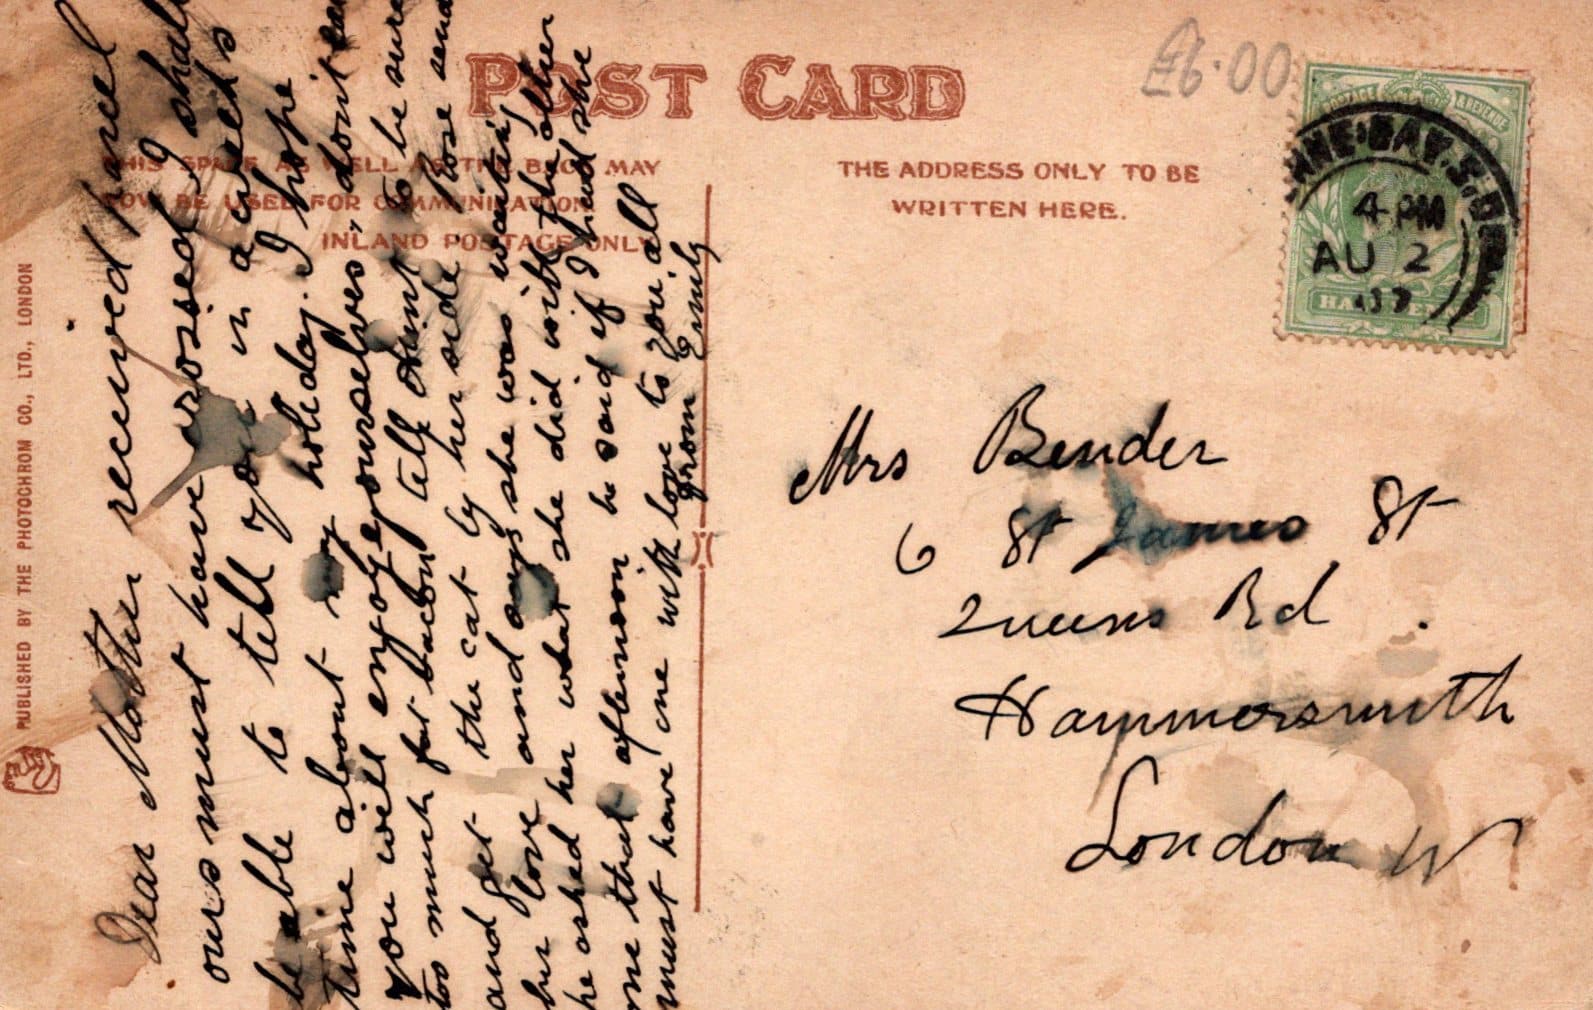 £6.00
POST CARD
THIS SPACE AS WELL AS THE BACK MAY
NOW BE USED FOR COMMUNICATION
INLAND POSTAGE ONLY
THE ADDRESS ONLY TO BE
WRITTEN HERE.
POSTAGE & REVENUE
HALFPENNY
NE·BAY·S.O
4 PM
AU 2
07
Dear Mother received parcel
ours must have crossed I shall
be able to tell you in a weeks
time about my holeday. I hope
you will enjoy yourselves, dont
too much fat bacon tell Aunt to be sure
and get the cat by her side Rose send
her love and says she was
he asked her what she did with the other
one that afternoon he said if I had she
must have one with love to you all
from Emily
Mrs Bender
6 St James St
Queens Rd.
Hammersmith
London W
PUBLISHED BY THE PHOTOCHROM CO., LTD., LONDON